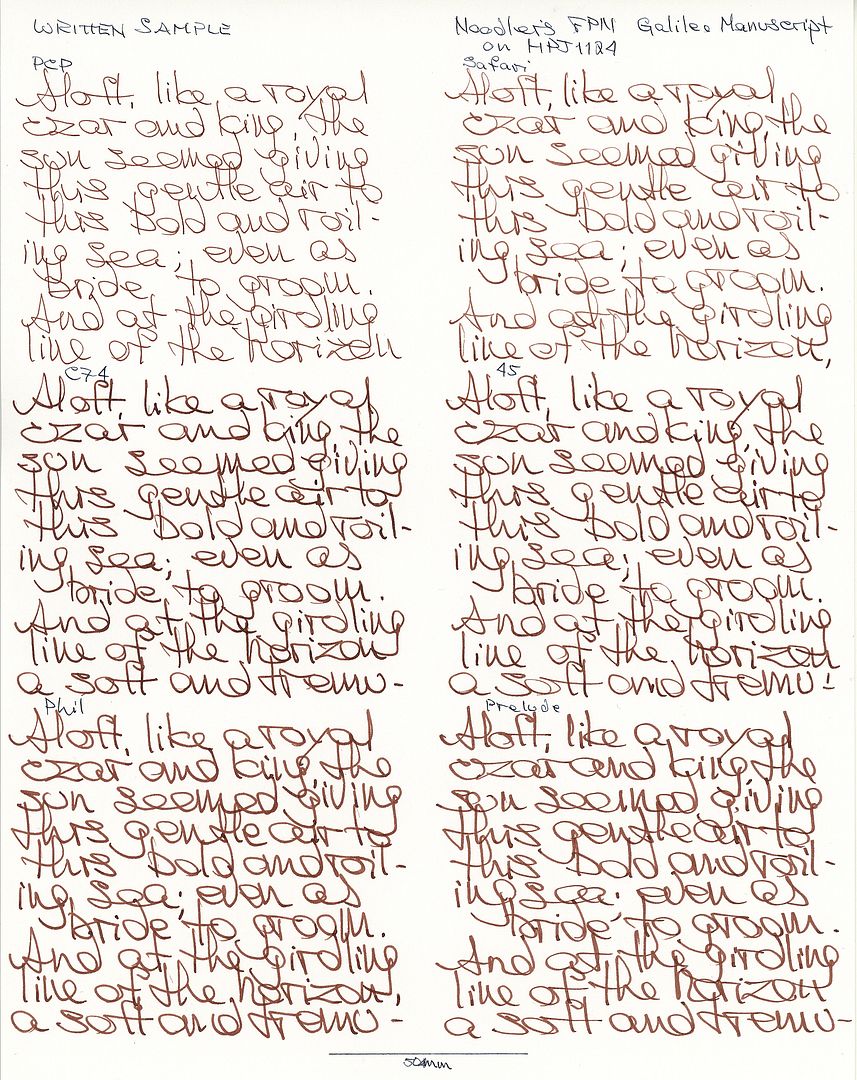 WRITTEN SAMPLE
Noodler's FPN Galileo Manuscript
on HPJ1124
PCP
Aloft, like a royal
czar and king, the
sun seemed giving
this gentle air to
this bold and roil-
ing sea; even as
bride to groom.
And at the girdling
line of the horizon
Safari
Aloft, like a royal
czar and king, the
sun seemed giving
this gentle air to
this bold and roil-
ing sea; even as
bride to groom.
And at the girdling
line of the horizon,
C74
Aloft, like a royal
czar and king, the
sun seemed giving
this gentle air to
this bold and roil-
ing sea; even as
bride, to groom.
And at the girdling
line of the horizon
a soft and tremu-
45
Aloft, like a royal
czar and king, the
sun seemed giving
this gentle air to
this bold and roil-
ing sea; even as
bride to groom.
And at the girdling
line of the horizon
a soft and tremu-
Phil
Aloft, like a royal
czar and king, the
sun seemed giving
this gentle air to
this bold and roil-
ing sea; even as
bride to groom.
And at the girdling
line of the horizon,
a soft and tremu-
Prelude
Aloft, like a royal
czar and king, the
sun seemed giving
this gentle air to
this bold and roil-
ing sea; even as
bride to groom.
And at the girdling
line of the horizon
a soft and tremu-
50mm